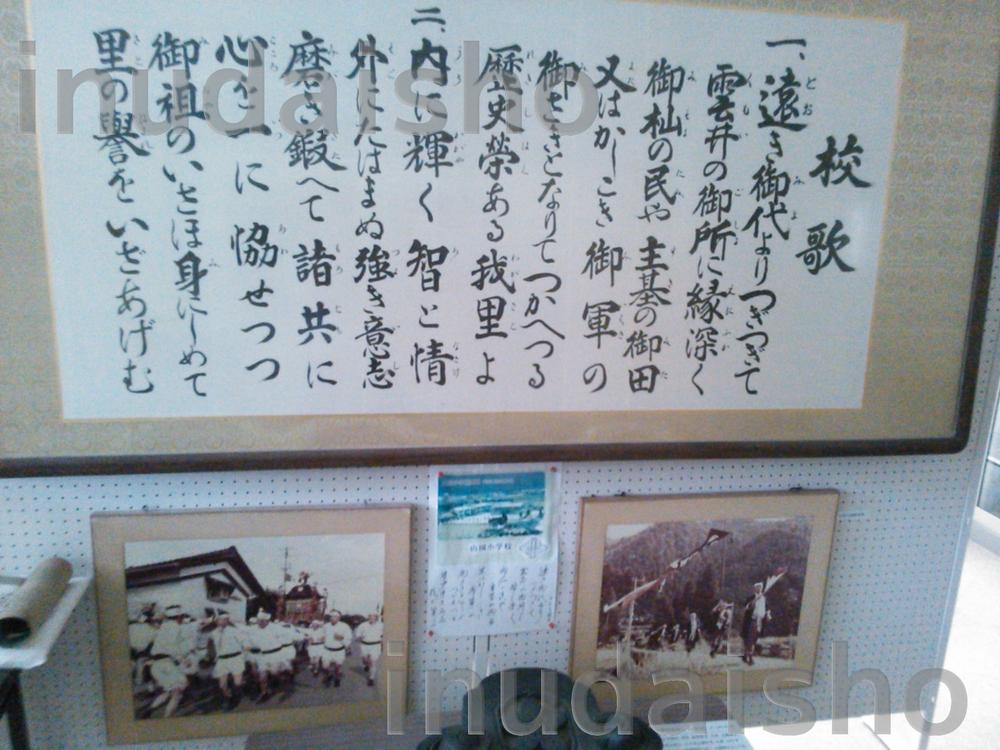 校歌
一、遠き御代よりつぎつぎて
雲井の御所に縁深く
御杣の民や主基の御田
又はかしこき御軍の
御さきとなりてつかへつる
歴史榮ある我里よ
二、内に輝く智と情
外にたはまぬ強き意志
磨き鍛へて諸共に
心を一に協せつつ
御祖のいさほ身にしめて
里の譽をいざあげむ
山国小学校
inudaisho
inudaisho